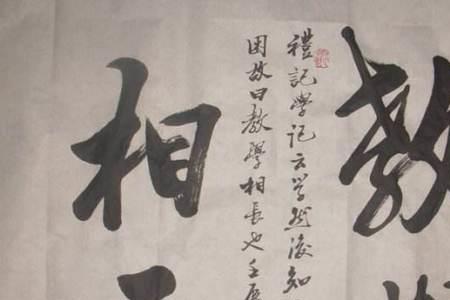 教
禮記学記云学然後知
困故曰教學相長也壬辰
相